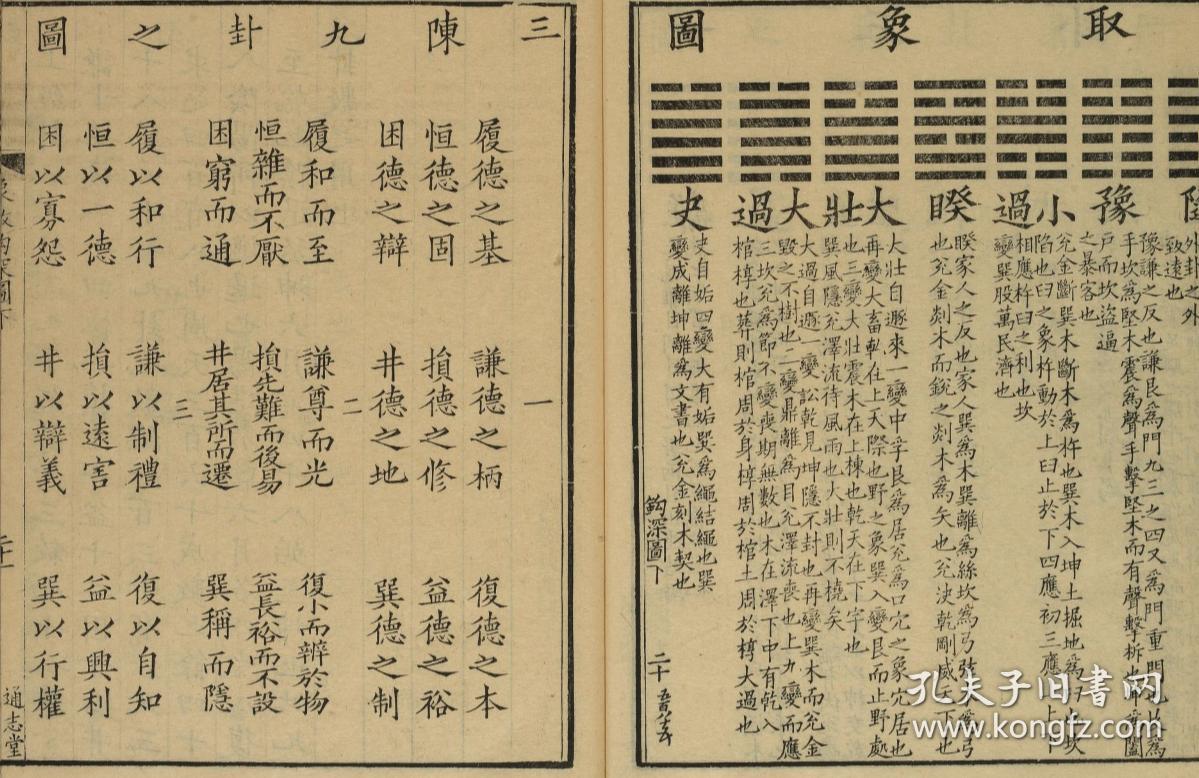 取象圖
隨
外卦之外
致遠也
豫
豫謙之反也謙艮爲門九三之四又爲門重門
手坎爲堅木震爲聲手擊堅木而有聲擊柝也
戶而坎盜逼
之暴客也
小過
兊金斷巽木斷木爲杵也巽木入坤土掘地爲臼也坎
陷也臼之象杵動於上臼止於下四應初三應上上下
相應杵臼之利也坎
變巽股萬民濟也
睽
睽家人之反也家人巽爲木巽離爲絲坎爲弓弦木爲弓
也兊金剡木而銳之剡木爲矢也兊決乾剛威天下也
大壯
大壯自遯來一變中孚艮爲居兊爲口穴之象穴居也
再變大畜乾在上天際也野之象巽入變艮而止野處
也三變大壯震木在上棟也乾天在下宇也
巽風隱兊澤流待風雨也大壯則不橈矣
大過
大過自遯一變訟乾見坤隱不封也再變巽木而兊金
毀之不樹也二變鼎離爲目兊澤流喪也上九變而應
三坎兊爲節不變喪期無數也木在澤下中有乾人
棺椁也葬則棺周於身椁周於棺土周於椁大過也
夬
夬自姤四變大有姤巽爲繩結繩也巽
變成離坤離爲文書也兊金刻木契也
鈎深圖下
二十
三陳九卦之圖
一
履德之基
謙德之柄
復德之本
恒德之固
損德之修
益德之裕
困德之辯
井德之地
巽德之制
二
履和而至
謙尊而光
復小而辨於物
恒雜而不厭
損先難而後易
益長裕而不設
困窮而通
井居其所而遷
巽稱而隱
三
履以和行
謙以制禮
復以自知
恒以一德
損以遠害
益以興利
困以寡怨
井以辯義
巽以行權
通志堂
孔夫子旧书网
www.kongfz.com